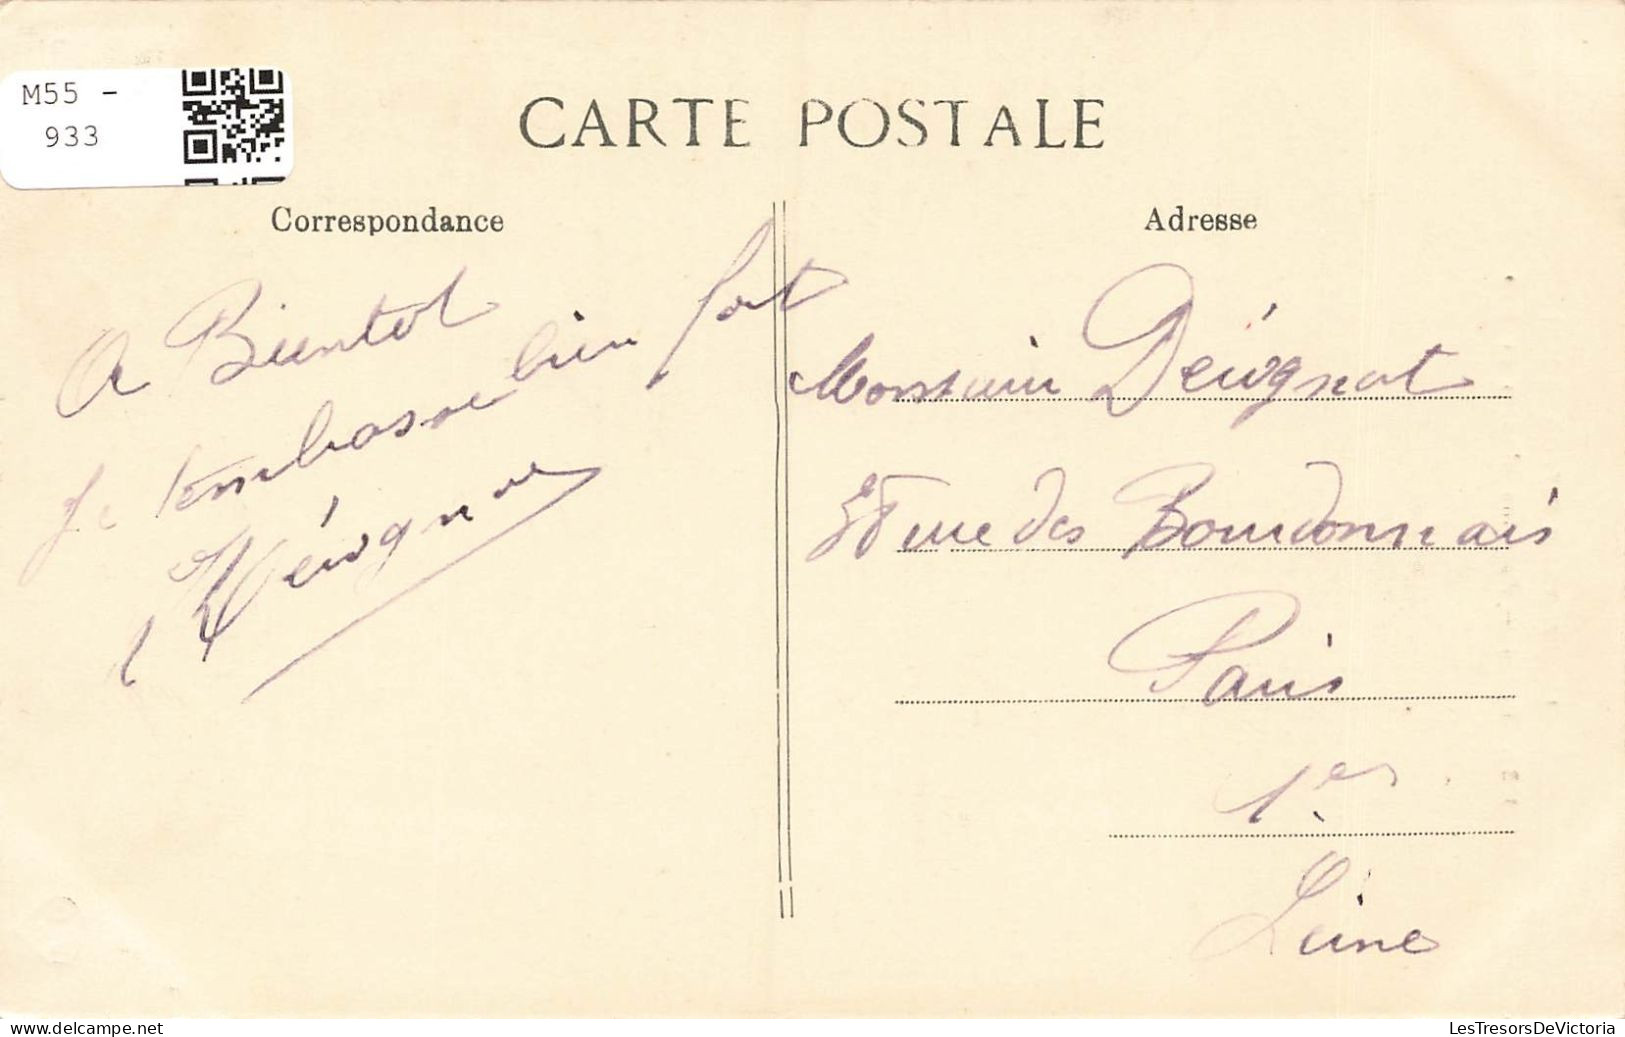 M55 -
933
CARTE POSTALE
Correspondance
Adresse
A Bientot
Je t'embrasse bien fort
Monsieur Deivgnat
rue des Bourdonnais
Paris
1er
Seine
www.delcampe.net
LesTresorsDeVictoria